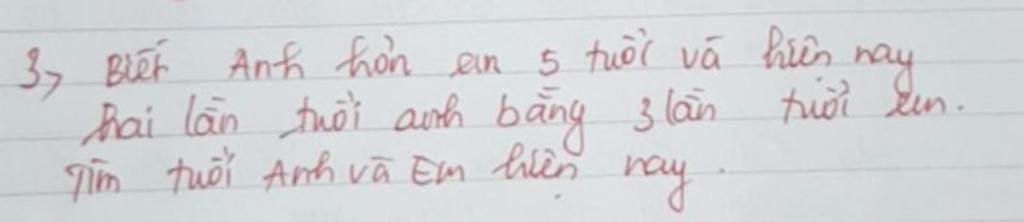 3, Biết Anh hơn em 5 tuổi và hiện nay
hai lần tuổi anh bằng 3 lần tuổi em.
Tìm tuổi Anh và Em hiện nay.